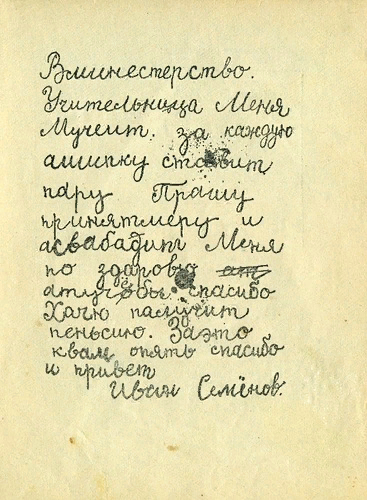 Вминестерство.
Учительница Меня
Мучеит. за каждую
ашипку ставит
пару Прашу
принятмеру и
асвабадит Меня
по здоровю
атучёбы. спасибо
Хачю палучит
пеньсию. Заэто
квам опять спасибо
и привет
Иван Семёнов.